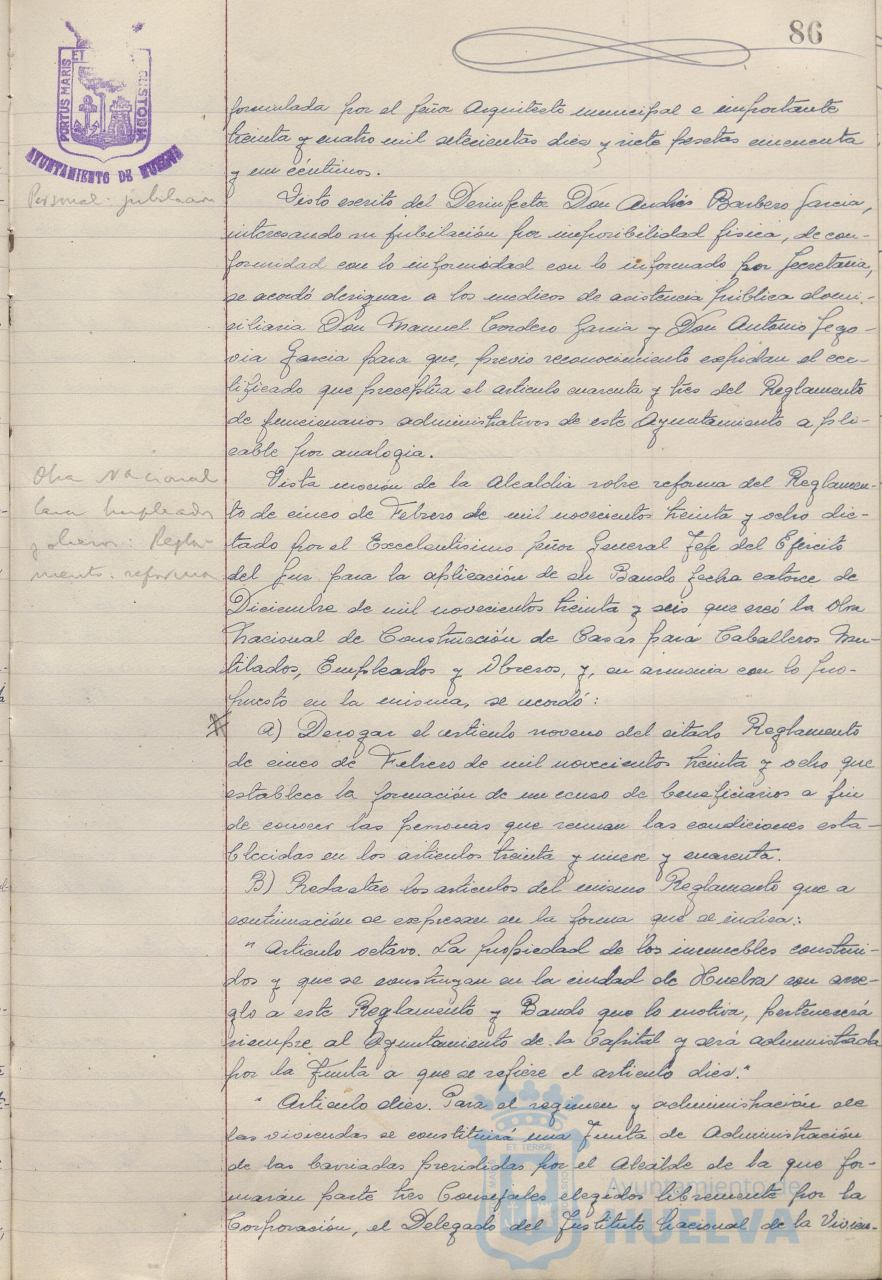 86
PORTUS MARIS ET TERRAE CUSTODIA
AYUNTAMIENTO DE HUELVA
formulada por el Señor Arquitecto municipal e importante
treinta y cuatro mil setecientas diez y siete pesetas cincuenta
y un céntimos.
Personal: jubilación
Visto escrito del Desinfector Don Andrés Barbero Garcia,
interesando su jubilación por imposibilidad fisica, de con-
formidad con lo informidad con lo informado por Secretaria,
se acordó designar a los medicos de asistencia pública domi-
ciliaria Don Manuel Cordero Garcia y Don Antonio Sego-
via Garcia para que, previo reconocimiento expidan el cer-
tificado que preceptua el articulo cuarenta y tres del Reglamento
de funcionarios administrativos de este Ayuntamiento a pli-
cable por analogia.
Obra Nacional
Casa Empleados
y obreros: Regla-
mento. reforma
Vista moción de la Alcaldia sobre reforma del Reglamen-
to de cinco de Febrero de mil novecientos treinta y ocho dic-
tado por el Excelentisimo Señor General Jefe del Ejército
del Sur para la aplicación de su Bando fecha catorce de
Diciembre de mil novecientos treinta y seis que creó la Obra
Nacional de Construcción de Casas para Caballeros Mu-
tilados, Empleados y Obreros, y, en armonia con lo pro-
puesto en la misma, se acordó:
a) Derogar el articulo noveno del citado Reglamento
de cinco de Febrero de mil novecientos treinta y ocho que
establece la formación de un censo de beneficiarios a fin
de conocer las personas que reunan las condiciones esta-
blecidas en los articulos treinta y nueve y cuarenta.
B) Redactar los articulos del mismo Reglamento que a
continuación se expresan en la forma que se indica:
" Articulo octavo. La propiedad de los inmuebles construi-
dos y que se construyan en la ciudad de Huelva con arre-
glo a este Reglamento y Bando que lo motiva, pertenecerá
siempre al Ayuntamiento de la Capital y será administrada
por la Junta a que se refiere el articulo diez."
" Articulo diez. Para el regimen y administración de
las viviendas se constituirá una Junta de Administración
de las barriadas presididas por el Alcalde de la que for-
marán parte tres Concejales elegidos libremente por la
Corporación, el Delegado del Instituto Nacional de la Vivien-
Ayuntamiento de
HUELVA